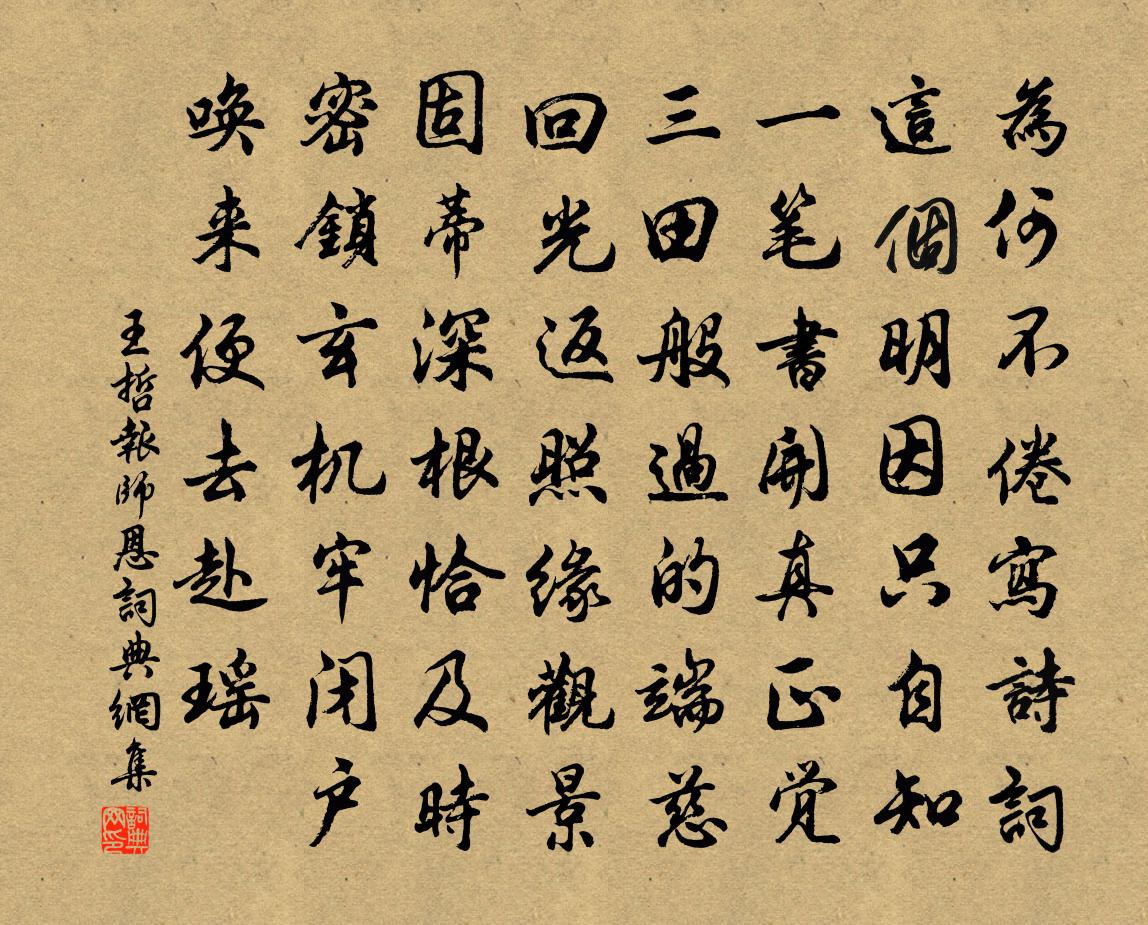 為何不倦寫詩詞
這個明因只自知
一笔書開真正觉
三田般過的端慈
回光返照緣觀景
固蒂深根恰及時
密鎖玄机牢闭户
唤来便去赴瑶
王哲報師恩詞典網集
詞典
网印